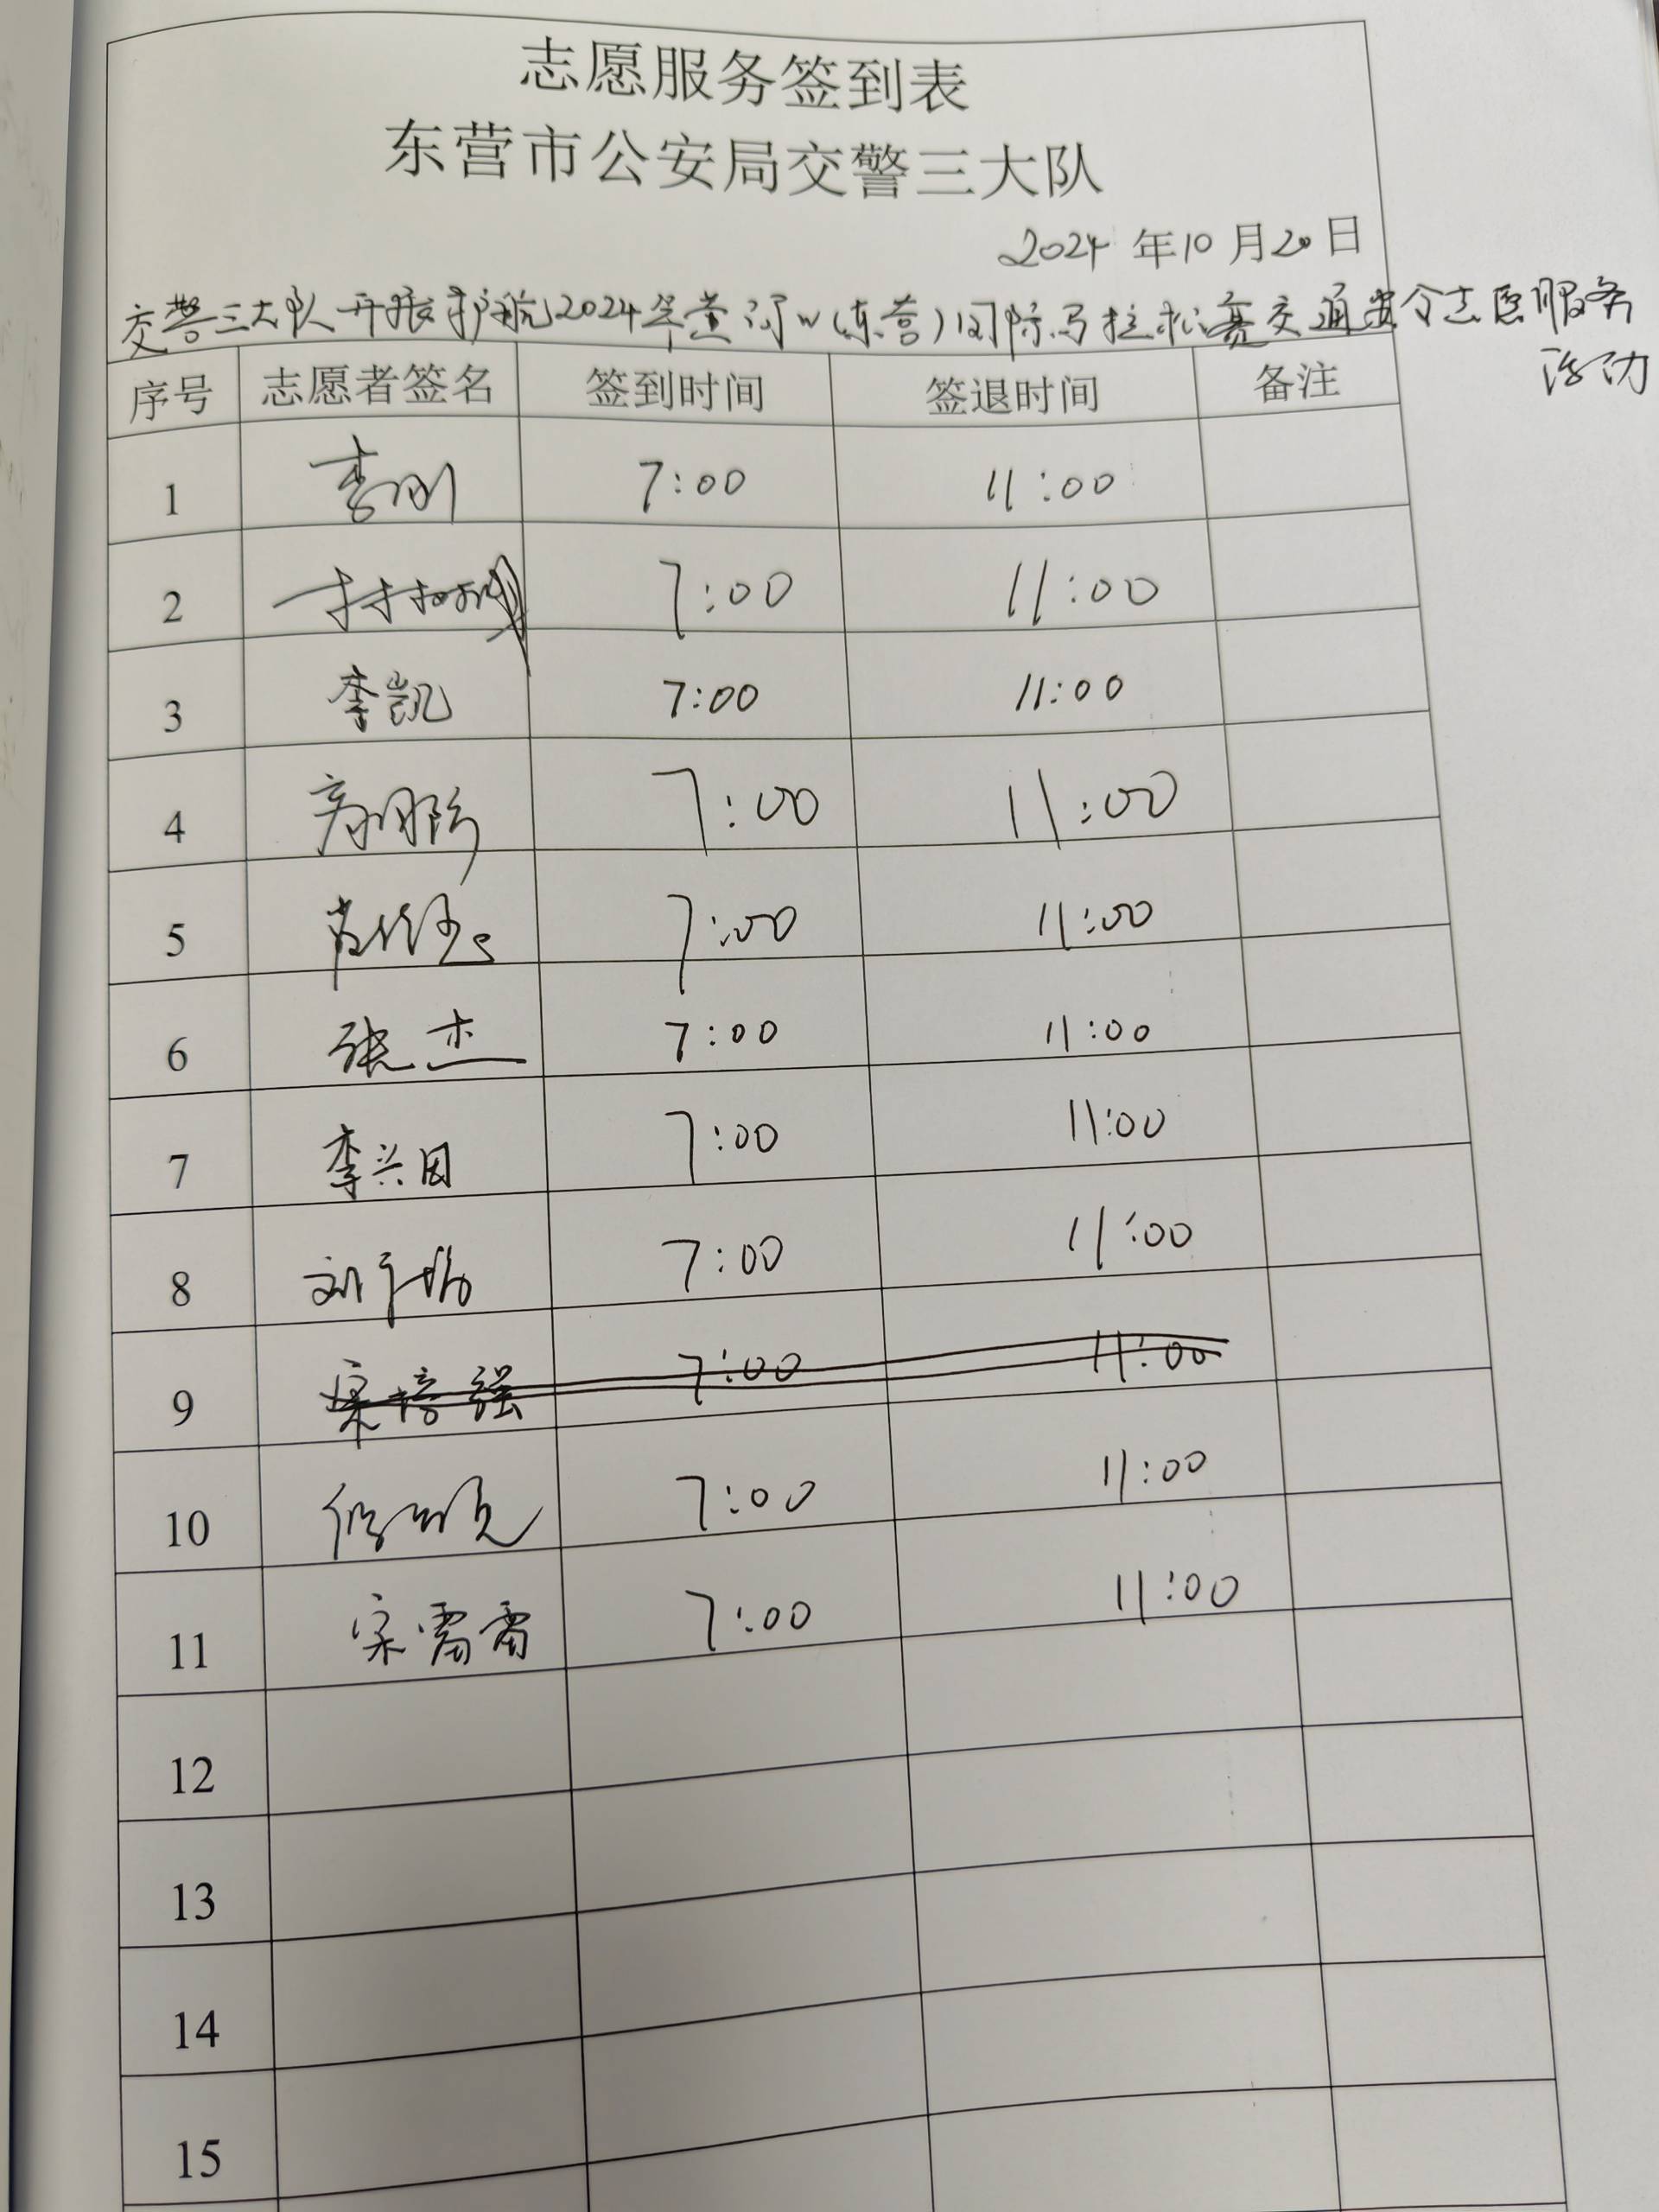 志愿服务签到表
东营市公安局交警三大队
2024 年10 月20日
交警三大队开展护航2024年黄河口(东营)国际马拉松赛交通安全志愿服务
活动
序号 志愿者签名 签到时间 签退时间 备注
1 李刚 7:00 11:00
2 7:00 11:00
3 李凯 7:00 11:00
4 7:00 11:00
5 7:00 11:00
6 张杰 7:00 11:00
7 李兴国 7:00 11:00
8 刘 7:00 11:00
9 梁培强 7:00 11:00
10 7:00 11:00
11 宋雷雷 7:00 11:00
12
13
14
15